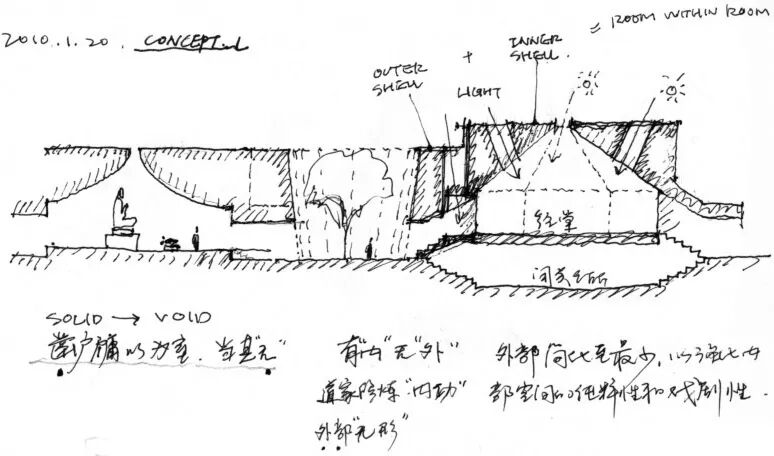 2010.1.20. CONCEPT.1
= ROOM WITHIN ROOM
+ INNER
SHELL
OUTER
SHELL
LIGHT
经堂
闭关
SOLID → VOID
凿户牖以为室. 当其"无"
有"内"无"外"
道家修炼"内功"
外部"无形"
外部简化至最少, 以强化内
部空间的纯粹性和戏剧性.